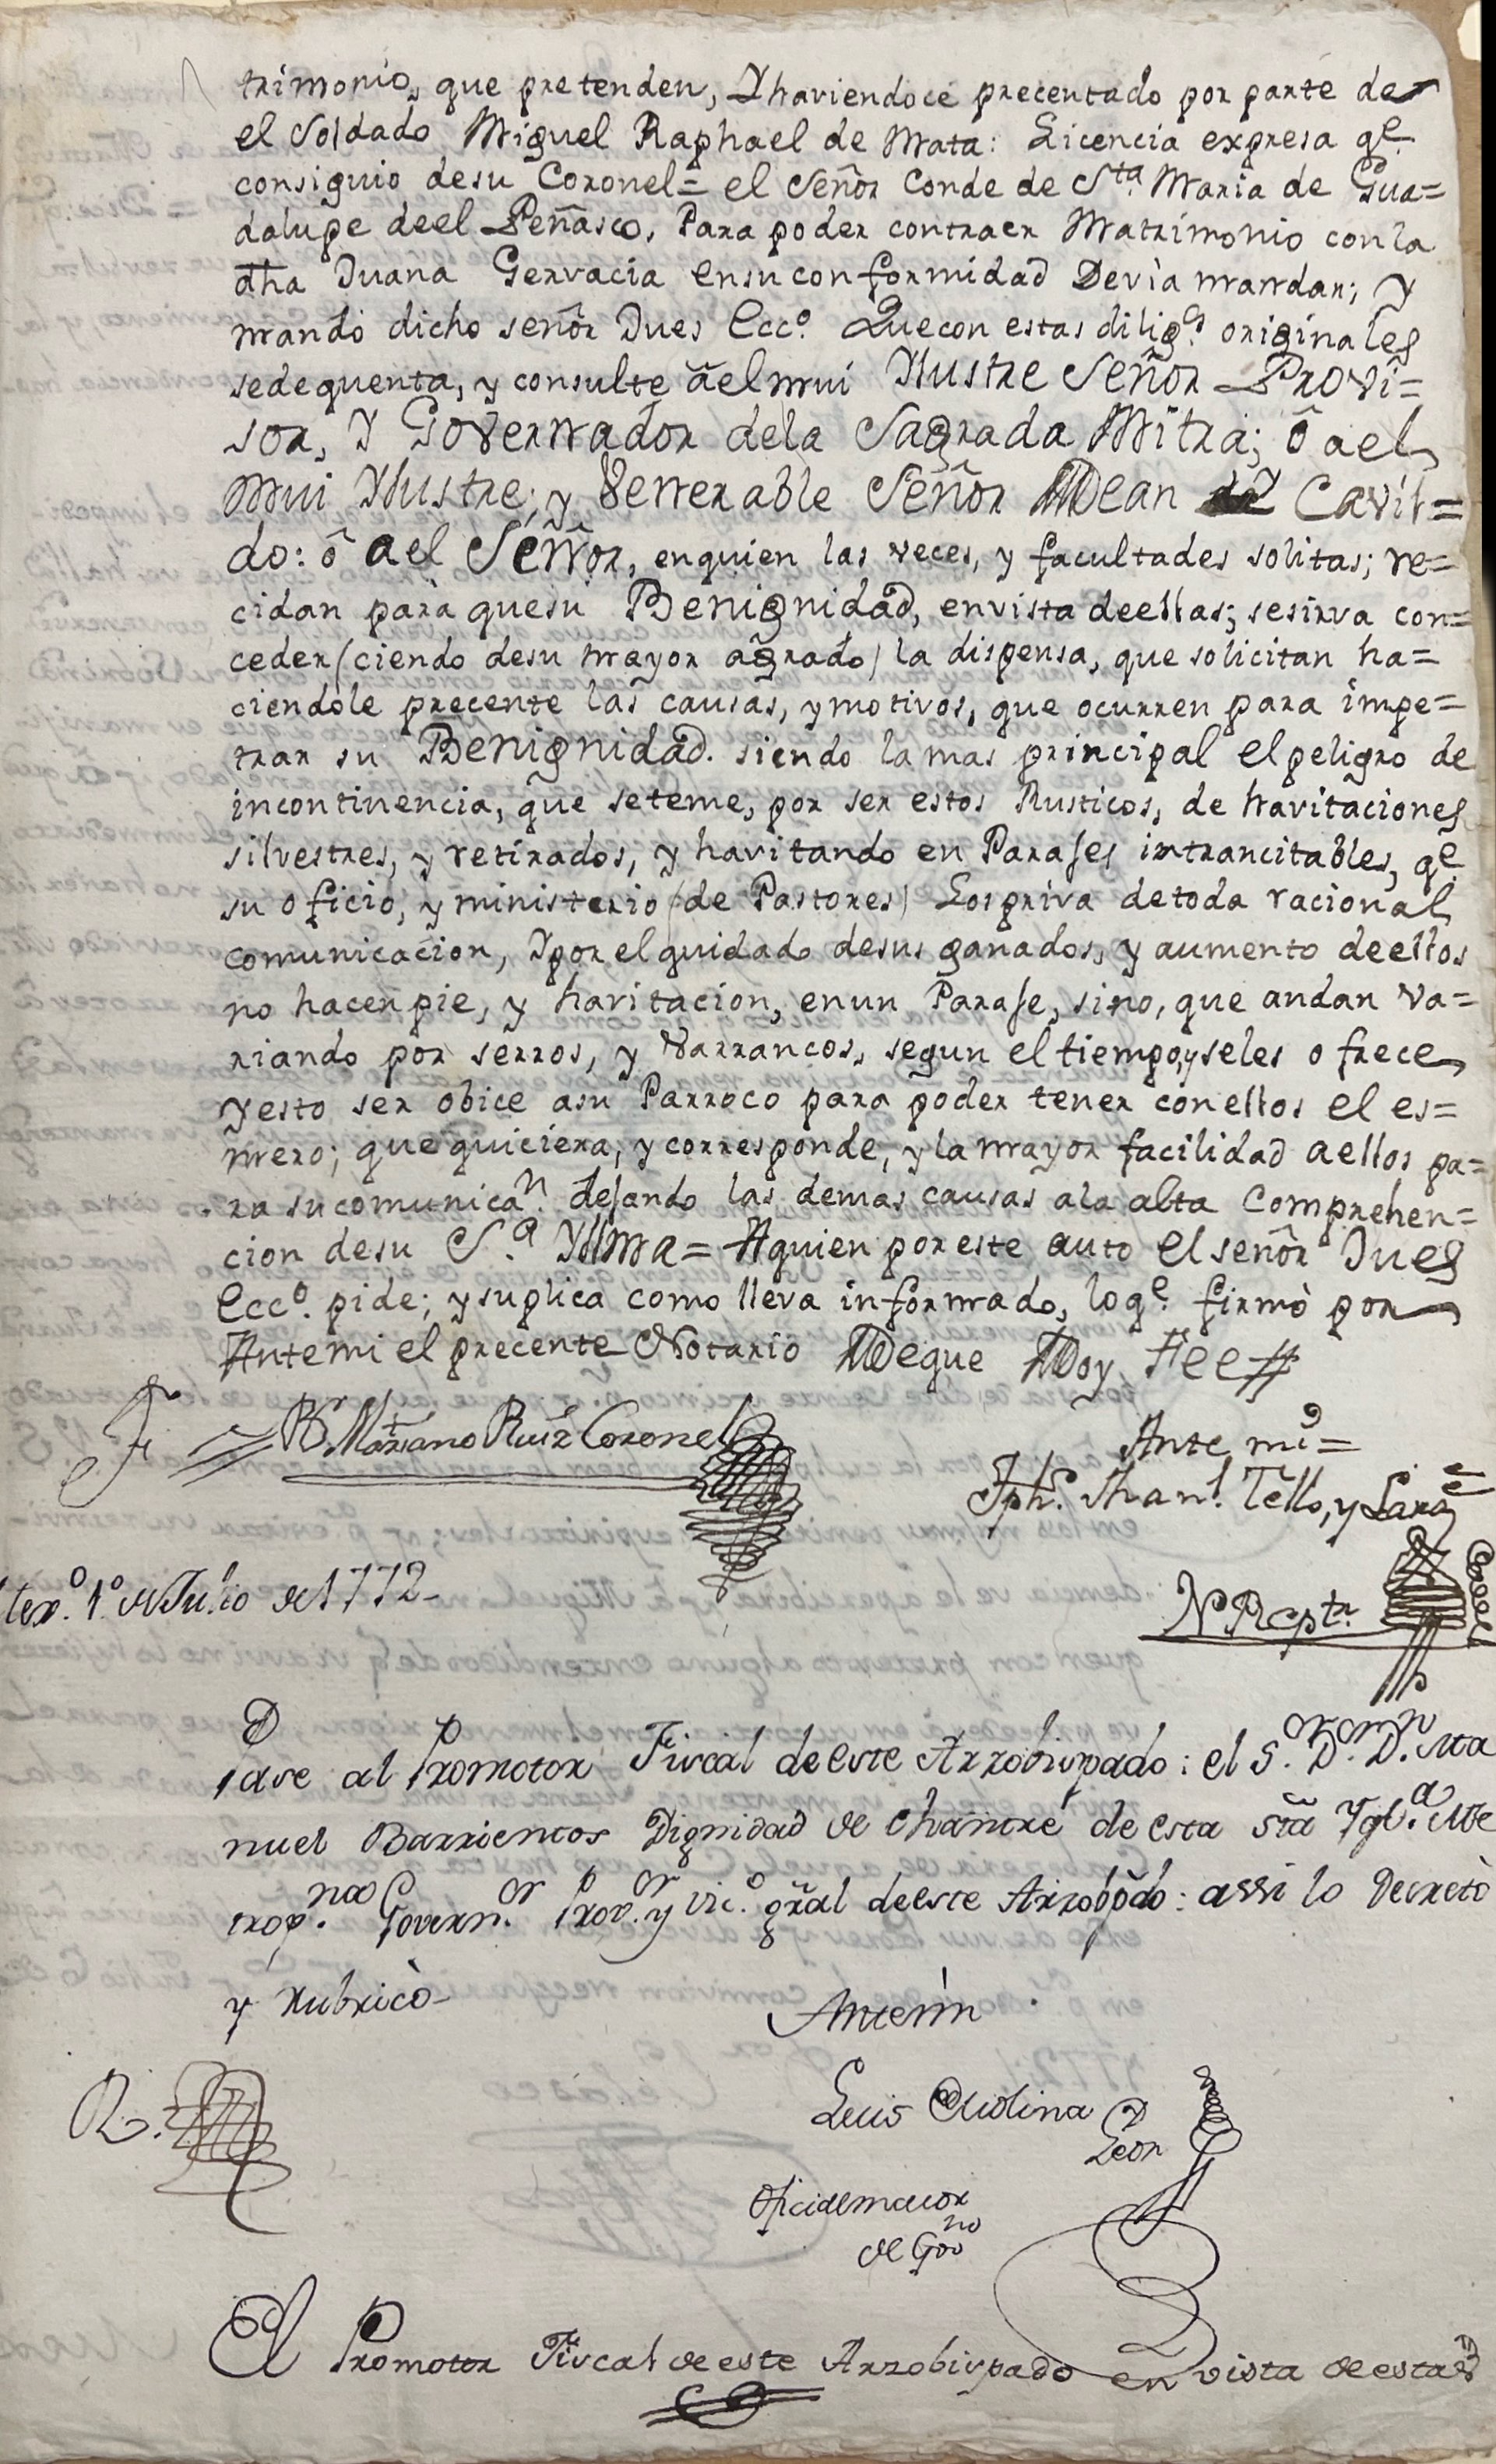 trimonio, que pretenden, Y haviendoce precentado por parte de
el Soldado Miguel Raphael de Mata: Licencia expresa qe.
consiguio desu Coronel= el Señor Conde de Sta. Maria de Gua=
dalupe deel Peñasco, Para poder contraer Matrimonio con la
dha Juana Gervacia en su conformidad Devìa mandar; y
mandó dicho señor Jues Ecco. Que con estas diligs. originales
sedequenta, y consulte â el mui Ylustre Señor Provi=
sor, Y Governador dela Sagrada Mitra; ô a el
Mui Ylustre, y Venerable Señor Dean Y Cavil=
do: ô a el Señor, enquien las veces, y facultades solitas; re=
cidan para quesu Benignidad, envista deellas; sesirva con=
ceder (ciendo desu mayor agrado) la dispensa, que solicitan ha=
ciendole precente las causas, y motivos, que ocurren para impe=
trar su Benignidad. siendo la mas principal el peligro de
incontinencia, que seteme, por ser estos Rusticos, de havitaciones
silvestres, y retirados, y havitando en Parajes intrancitables, qe.
su oficio, y ministerio (de Pastores) Los priva detoda racional
comunicacion, Y por el quidado desus ganados, y aumento deellos
no hacen pie, y havitacion, enun Paraje, sino, que andan va=
riando por serros, y varrancos, segun el tiempo, y seles ofrece
Y esto ser obice asu Parroco para poder tener con ellos el es=
mero; que quiciera, y corresponde, y la mayor facilidad aellos pa=
ra su comunican. dejando las demas causas ala alta Comprehen=
cion desu Sa. Yllma= A quien por este auto el señor Jues
Ecco. pide; y suplica como lleva informado, lo qe. firmò por
Antemi el precente Notario Deque Doy Fee
Br. Mariano Ruiz Coronel
Ante mi=
Jph. Man.l Tello, y Lara
N. Rcptr.
Mexo. 1o. de Julio de 1772-
Pase al Promotor Fiscal deeste Arzobispado: el Sor. Dor. Dn. Ma
nuel Barrientos Dignidad de Chantre de esta Sta Ygla. Me
tropna. Governor. Provor. y Vico. gral deeste Arzobpdo: assi lo Decretò
y rubricò-
Antemi
Luis Molina
Leon
Oficialmaior
de Gov no
El Promotor Fiscal de este Arzobispado en vista de estas